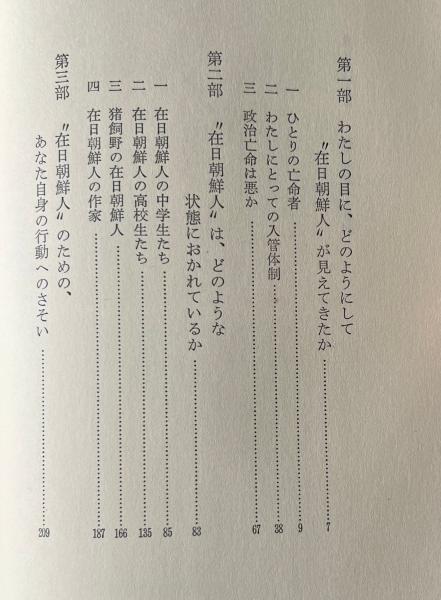 第一部 わたしの目に、どのようにして
〝在日朝鮮人〟が見えてきたか……7
一 ひとりの亡命者……9
二 わたしにとっての入管体制……38
三 政治亡命は悪か……67
第二部 〝在日朝鮮人〟は、どのような
状態におかれているか……83
一 在日朝鮮人の中学生たち……85
二 在日朝鮮人の高校生たち……135
三 猪飼野の在日朝鮮人……166
四 在日朝鮮人の作家……187
第三部 〝在日朝鮮人〟のための、
あなた自身の行動へのさそい……209